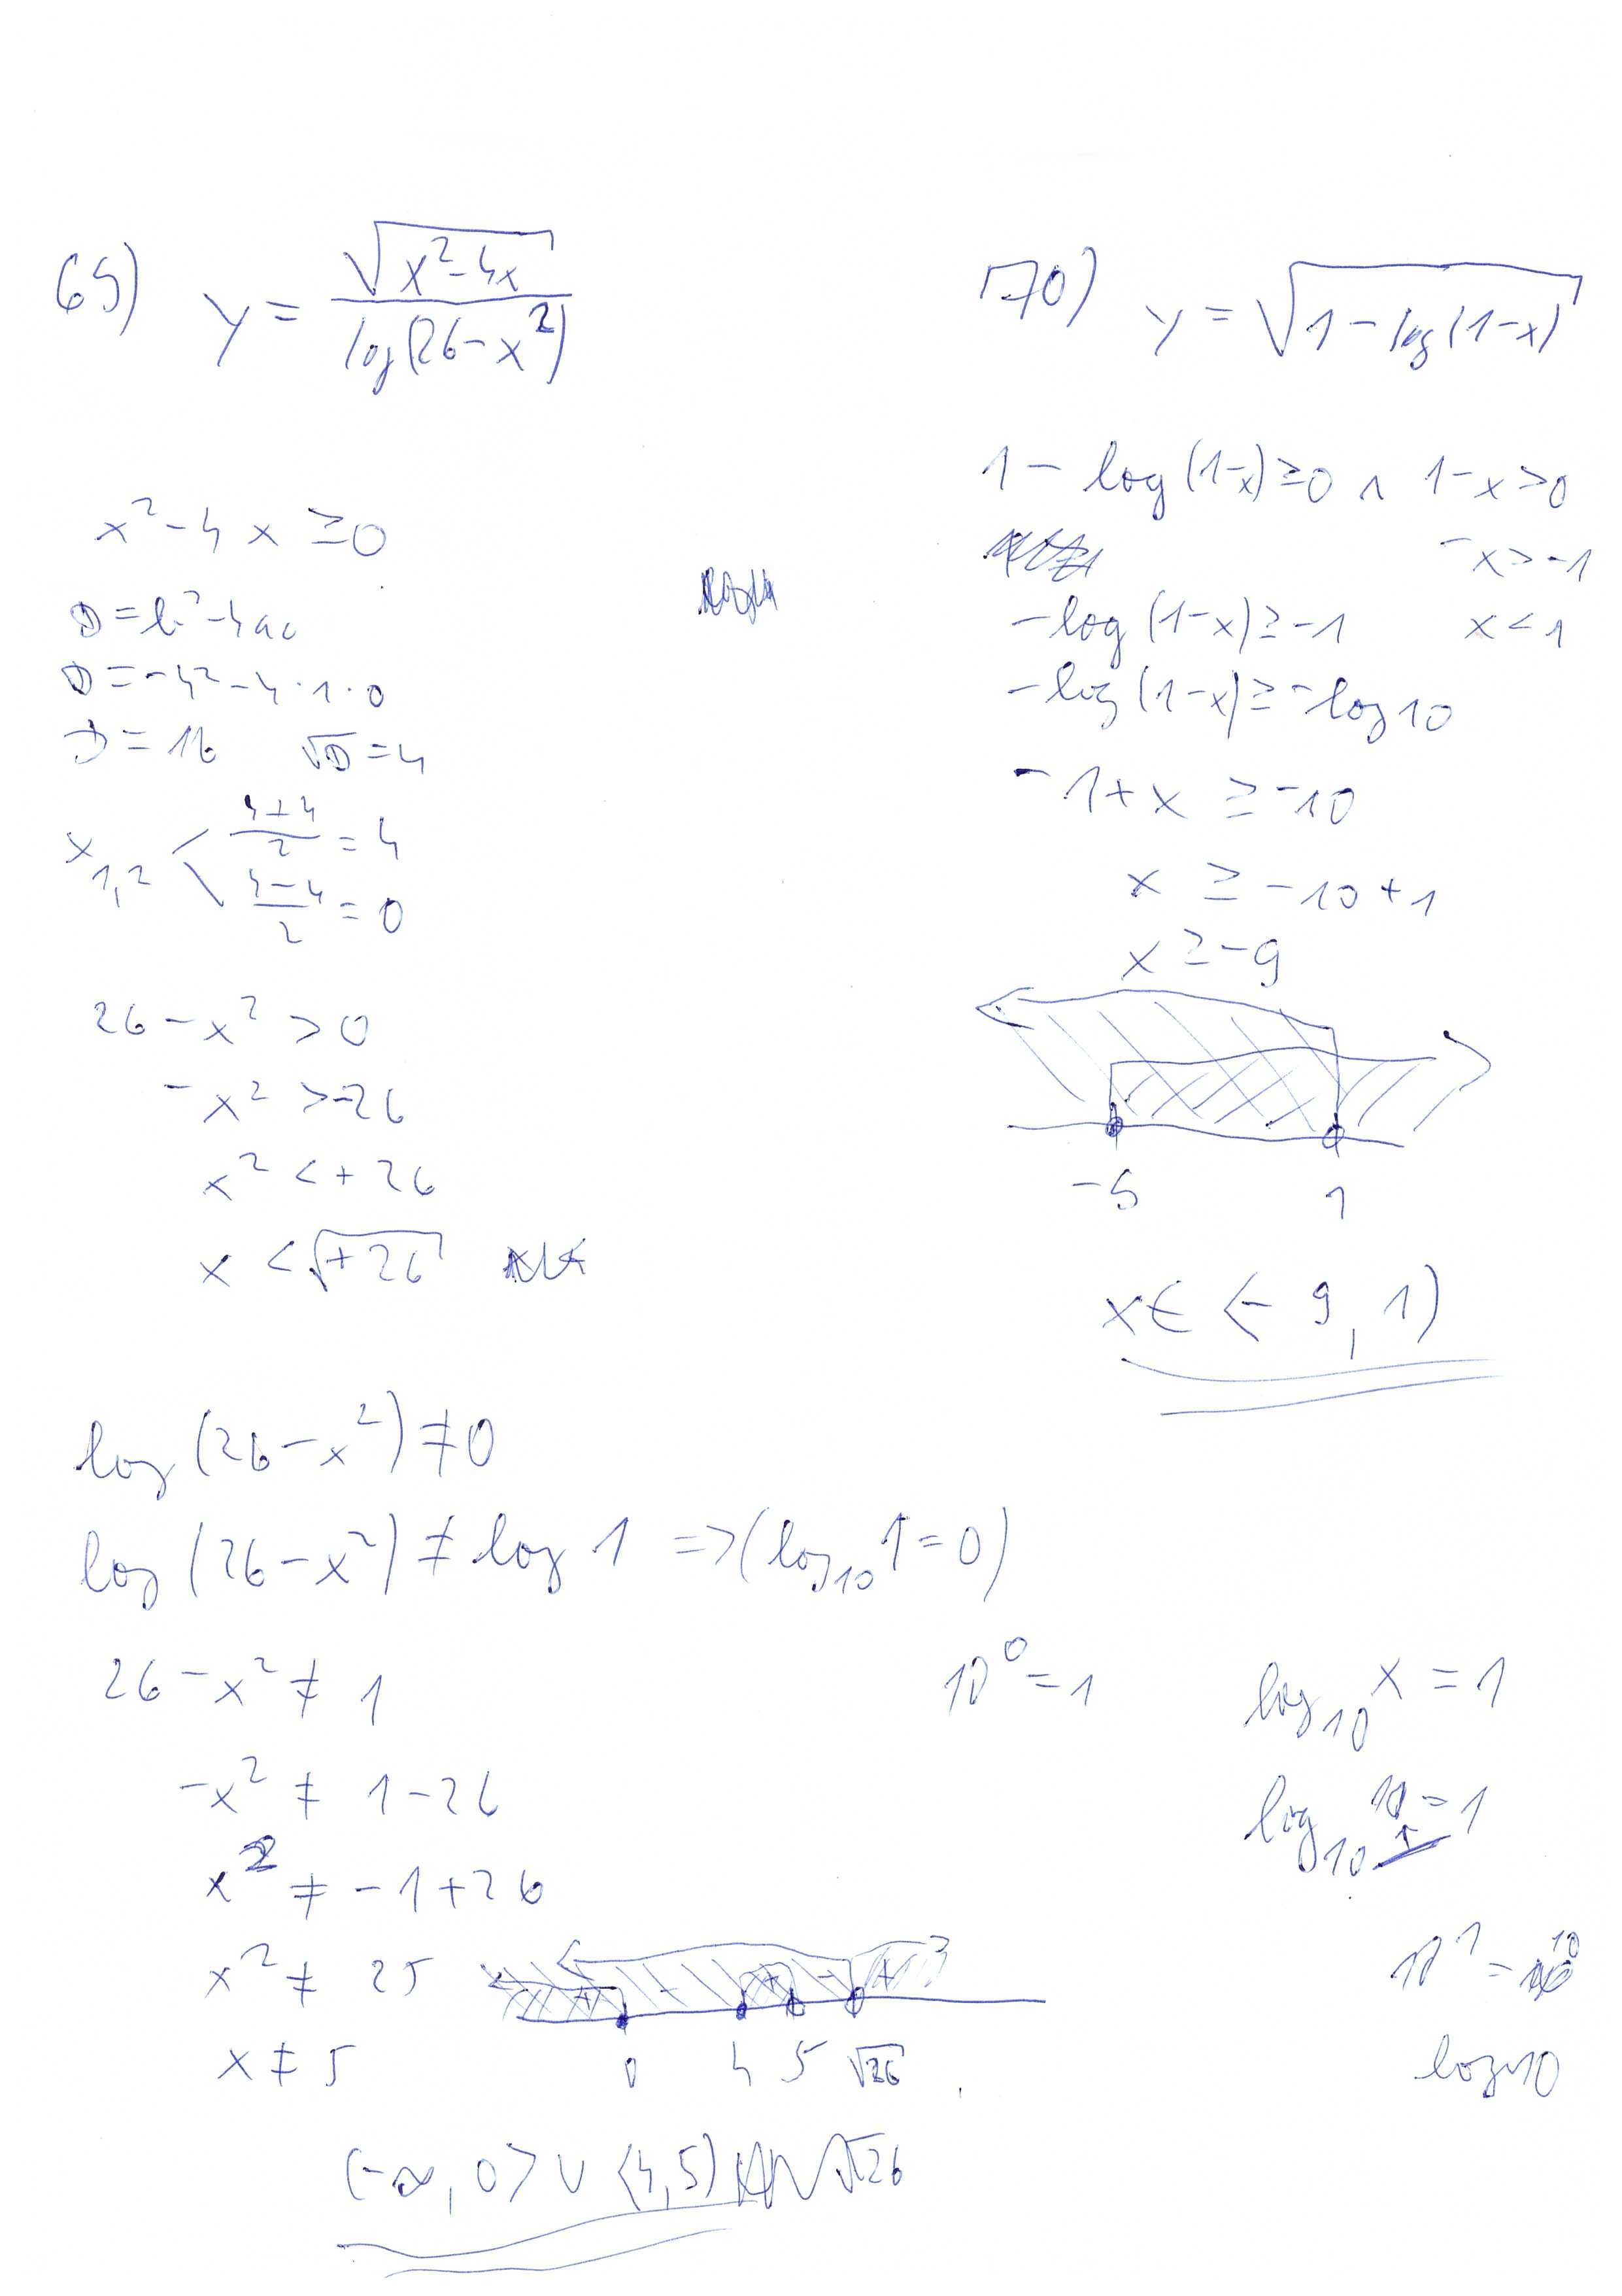 69) y = √(x²-4x) / log(26-x²)
x²-4x ≥0
D=b²-4ac
D=-4²-4·1·0
D=16 √D=4
x₁,₂ < (4+4)/2 = 4
(4-4)/2 = 0
26-x² >0
-x² >-26
x² <+26
x <√+26
log(26-x²)≠0
log(26-x²)≠ log 1 =>(log₁₀1=0)
26-x² ≠ 1
-x² ≠ 1-26
x² ≠ -1+26
x² ≠ 25
x ≠ 5
+ - + - +
0 4 5 √26
(-∞,0> ∪ <4,5) √26
70) y = √(1-log(1-x))
1-log(1-x)≥0 ∧ 1-x>0
-x>-1
-log(1-x)≥-1 x<1
-log(1-x)≥-log10
-1+x ≥-10
x ≥ -10+1
x ≥-9
-9 1
x∈ <-9,1)
10⁰=1
log₁₀x=1
log₁₀10=1
10¹=10
log10